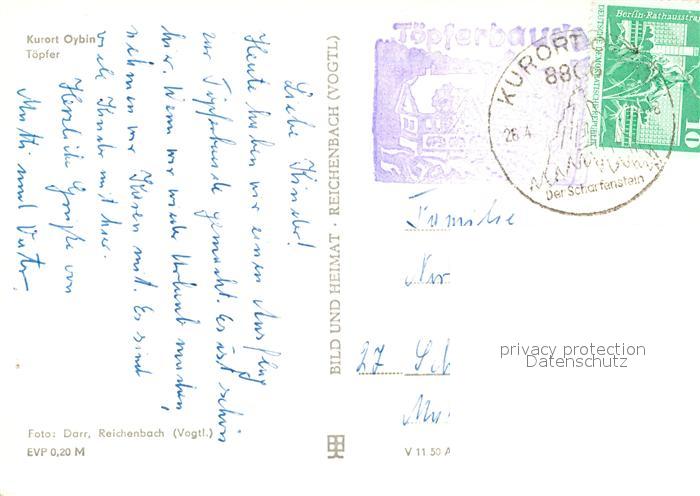 Kurort Oybin
Töpfer
Liebe Kinder!
Heute haben wir einen Ausflug
zur Töpferbaude gemacht. Es ist schön
hier. Wenn wir wieder Urlaub machen,
nehmen wir Karen mit. Es sind
viele Kinder mit hier.
Herzliche Grüße von
Mutti und Vater.
Foto: Darr, Reichenbach (Vogtl.)
EVP 0,20 M
BILD UND HEIMAT · REICHENBACH (VOGTL)
V 11 50 A
Töpferbaude
KURORT
880
28.4
Der Scharfenstein
Berlin-Rathausstraße
DEUTSCHE DEMOKRATISCHE REPUBLIK
10
Familie
27 Sch
privacy protection
Datenschutz